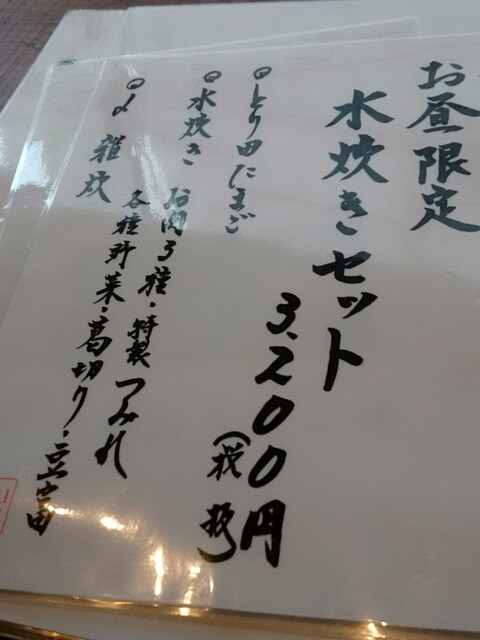 お昼限定
水炊きセット
3,200円
(税抜)
とり田たまご
水炊き
お肉3種・特製つみれ
各種野菜・葛切り・豆富
〆 雑炊